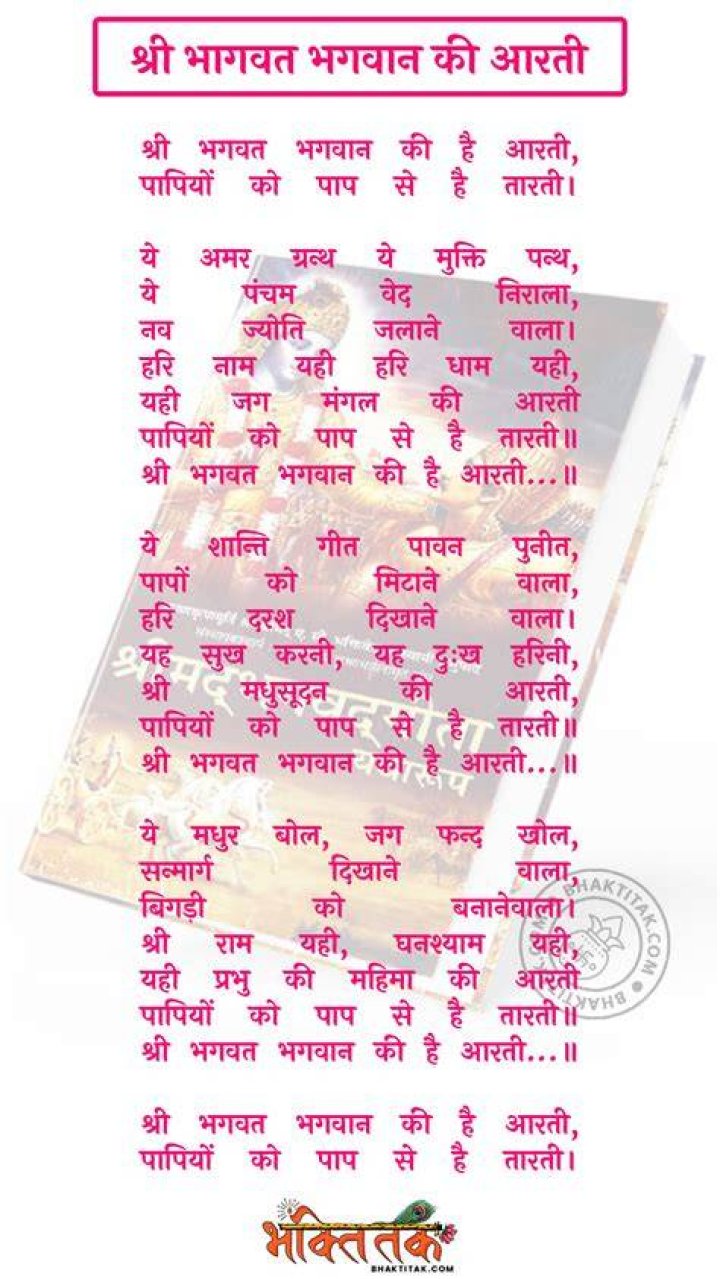 श्री भागवत भगवान की आरती
श्री भगवत भगवान की है आरती,
पापियों को पाप से है तारती।
ये अमर ग्रन्थ ये मुक्ति पन्थ,
ये पंचम वेद निराला,
नव ज्योति जलाने वाला।
हरि नाम यही हरि धाम यही,
यही जग मंगल की आरती
पापियों को पाप से है तारती॥
श्री भगवत भगवान की है आरती...॥
ये शान्ति गीत पावन पुनीत,
पापों को मिटाने वाला,
हरि दरश दिखाने वाला।
यह सुख करनी, यह दुःख हरिनी,
श्री मधुसूदन की आरती,
पापियों को पाप से है तारती॥
श्री भगवत भगवान की है आरती...॥
ये मधुर बोल, जग फन्द खोल,
सन्मार्ग दिखाने वाला,
बिगड़ी को बनानेवाला।
श्री राम यही, घनश्याम यही,
यही प्रभु की महिमा की आरती
पापियों को पाप से है तारती॥
श्री भगवत भगवान की है आरती...॥
श्री भगवत भगवान की है आरती,
पापियों को पाप से है तारती।
श्रीमद्भगवद्गीता
यथारूप
BHAKTITAK.COM
BHAKTITAK.COM
भक्ति तक
BHAKTITAK.COM